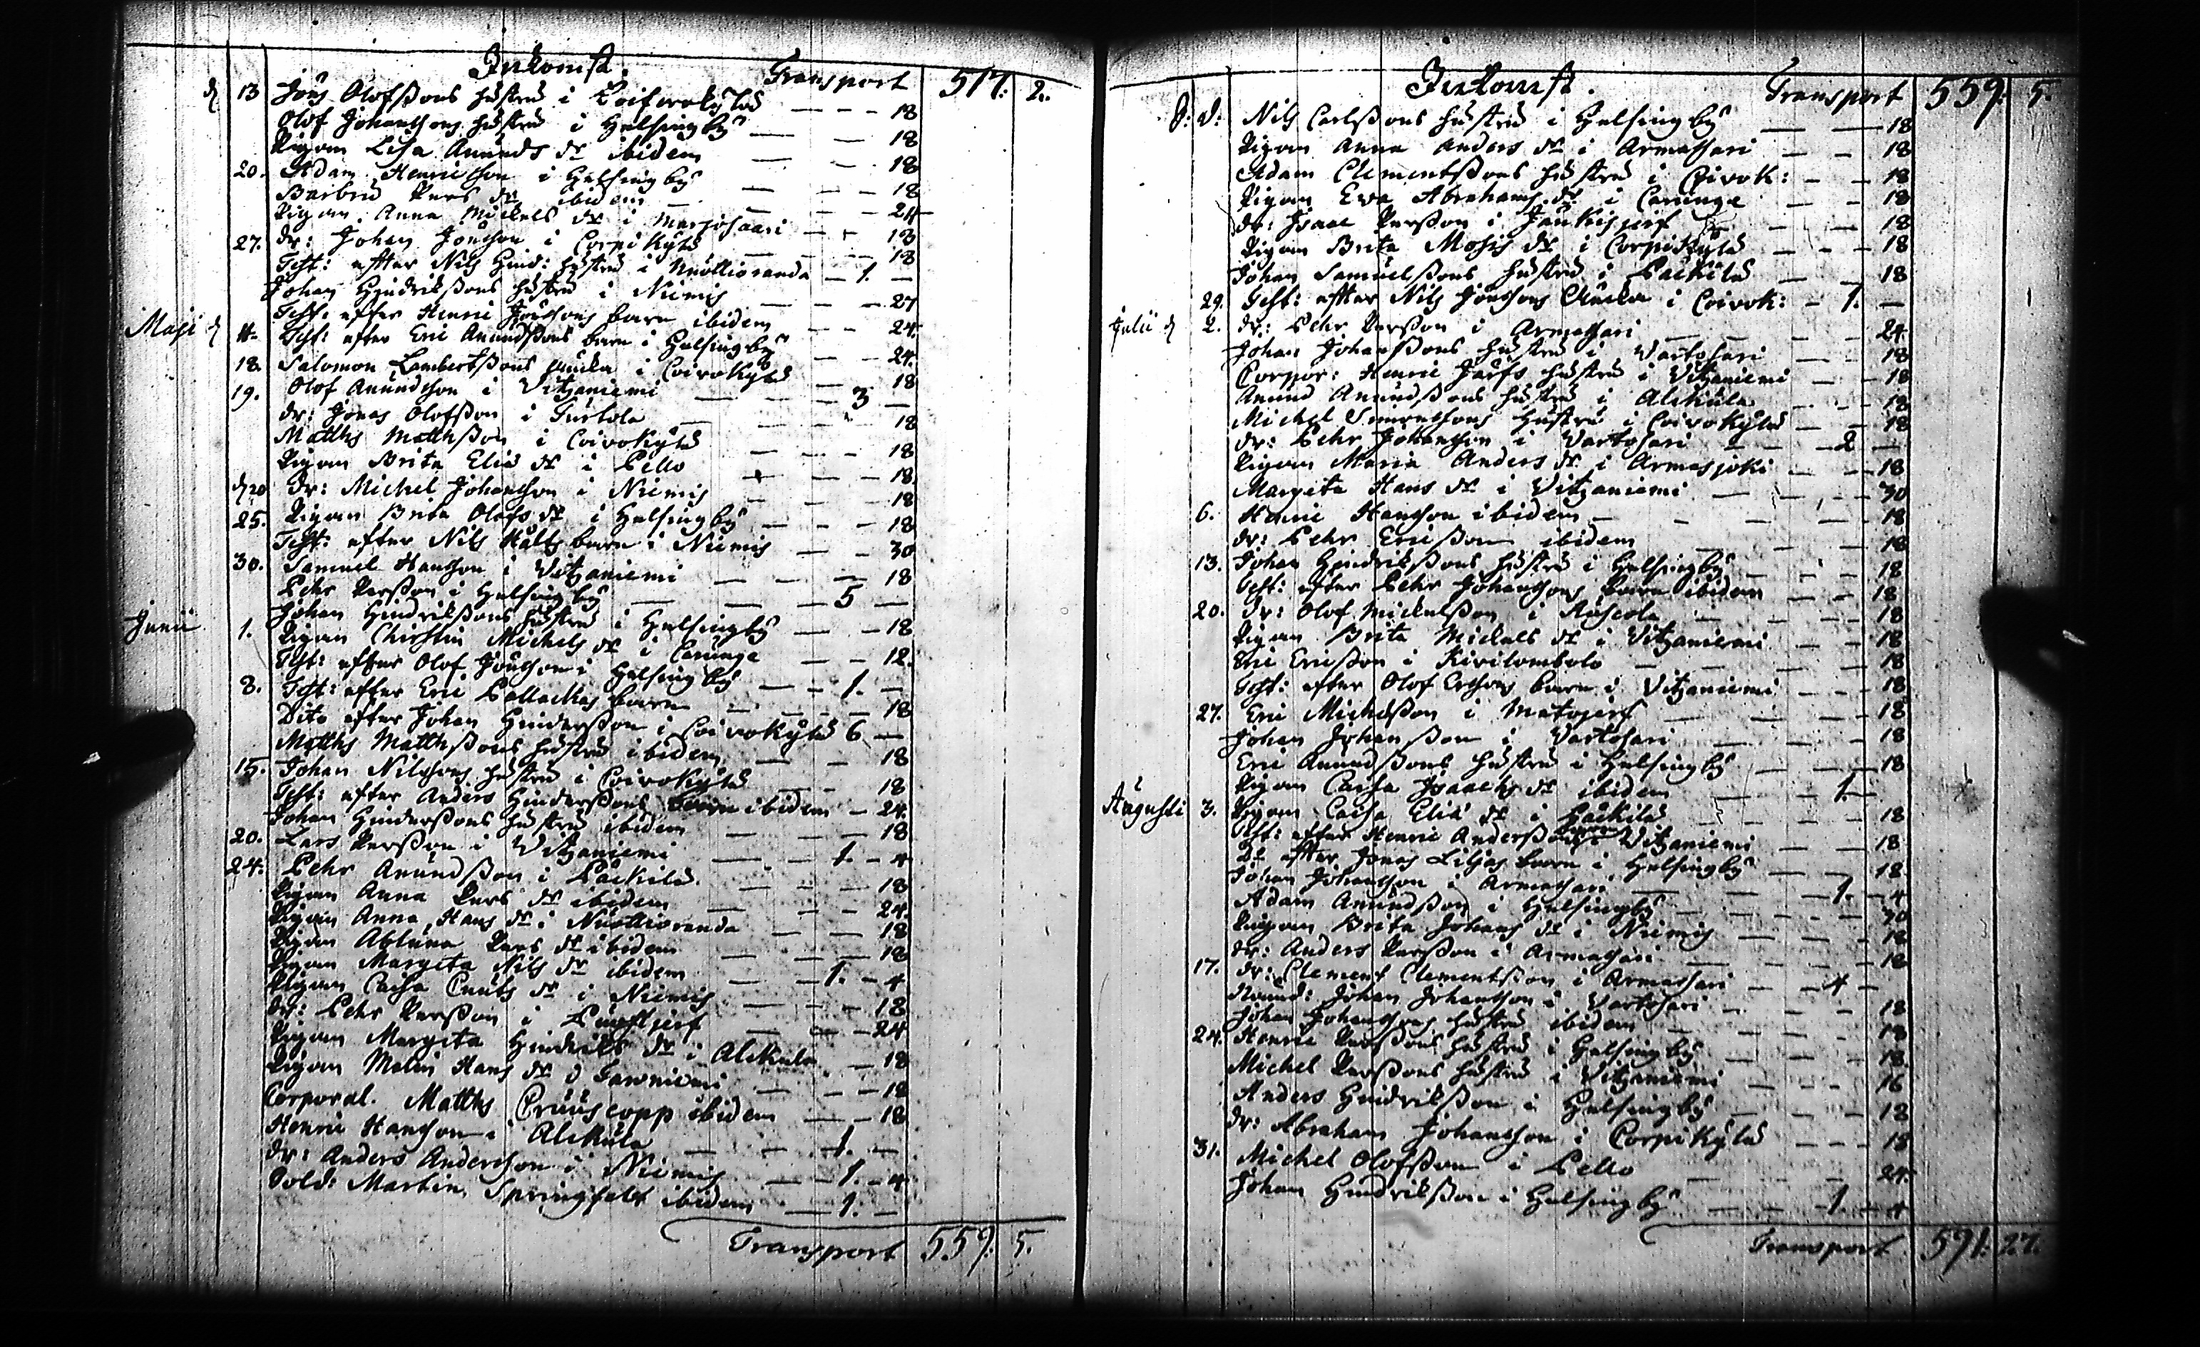 Inkomst.
Transport 517: 2.
d 13 Jöns Olofßons hustru i — — 18
Olof Johanssons hustru i Helsingby — — 18
Pigan Lisa Anunds dr ibidem — — 18
20. Adam Henricsson i Helsingby — — 18
Barbru Pers dr ibidem — — 24
Pigan Anna Michels dr i Marjosaari — — 18
27. dr: Johan Jönsson i Corpikylä — — 18
Test: efter Nils Hind: hustru i Nuottioranda — 1. —
Johan Hindrikßons hustru i Niemis — — 27
Test: efter Henric Jönssons barn ibidem — — 24.
Maji d 4. Test: efter Eric Anundßons barn i Helsingby — — 24.
18. Salomon Lambertßons Encka i Coivokylä — 18
19. Olof Anundsson i Vitzaniemi — — 3 —
dr: Jonas Olofßon i Turtola — — 18
Matths Matthßon i Coivokylä — — 18
Pigan Brita Eliæ dr i Pello — — 18.
d 20 dr: Michel Johansson i Niemis — — 18
25. Pigan Brita Olofs dr i Helsingby — — 18
Test: efter Nils Hålts barn i Niemis — — 30
30. Samuel Hansson i Vitzaniemi — — 18
Pehr Perßon i Helsingby — — 5 —
Johan Hindrikßons hustru i Helsingby — — 18
Junii 1. Pigan Christin Michels dr i Carunge — — 12.
Test: efter Olof Jönsson i Helsingby — — 1. —
8. Test: efter Eric barn — — 18
Dito efter Johan Hindersson i Coivokylä 6 —
Matths Matthßons hustru ibidem — — 18
15. Johan Nilssons hustru i Coivokylä — 18
Test: efter Anders Hinderßons barn ibidem — 24.
Johan Hinderßons hustru ibidem — — 18
20. Lars Perßon i Vitzaniemi — — 1. — 4
24. Pehr Anundßon i Päckilä. — — 18
Pigan Anna Pers dr ibidem — — 24.
Pigan Anna Hans dr i Nuottioranda — — 18
Pigan Abluna Pers dr ibidem — — 18
Pigan Margeta Nils dr ibidem — — 1. — 4
Pigan Caisa Cnuts dr i Niemis — — 18
dr: Pehr Perßon i — — 24
Pigan Margeta Hindriks dr i Alckula — 18
Pigan Malin Hans dr i — — 18
Corporal. Matths ibidem — — 18
Henric Hansson i Alckula — — 1. —
dr: Anders Andersson i Niemis — — 1. — 4
Sold: Marten Springfält ibidem — 1. —
Transport 559: 5.
Inkomst.
Transport 559: 5.
d: d: Nils Carlßons hustru i Helsingby — — 18
Pigan Anna Anders dr i Armassari — — 18
Adam Clementßons hustru i Coivok: — — 18
Pigan Eva Abrahams dr i Carunge — — 18
dr: Isaac Perßon i — — 18
Pigan Brita Mosis dr i Corpikylä — — 18
Johan Samuelßons hustru i Päckilä — — 18
29. Test: efter Nils Jönssons Encka i Coivok: — 1. —
Julii d 2. dr: Pehr Perßon i Armassari — — 24.
Johan Johanßons hustru i Vartosari — — 18
Corpor: Henric Järfs hustru i Vitzaniemi — — 18
Anund Anundßons hustru i Alckula — — 18
Michel hustru i Coivokylä — — 18
dr: Pehr Johansson i Vartosari — — 2 —
Pigan Maria Anders dr i Armasjoki — — 18
Margeta Hans dr i Vitzaniemi — — 30
6. Henric Hansson ibidem — — 18
dr: Pehr Ericßon ibidem — — 18
13. Johan Hindrikßons hustru i Helsingby — — 18
Test: efter Pehr Johanssons barn ibidem — — 18
20. dr: Olof Mickelßon i — — 18
Pigan Brita Mickels dr i Vitzaniemi — — 18
Eric Ericßon i Kivilombolo — — 18
Test: efter Olof barn i Vitzaniemi — — 18
27. Eric Michelßon i Matojerf — — 18
Johan Johanßon i Vartosari — — 18
Eric Anundßons hustru i Helsingby — — 18
Pigan Caisa Isaachs dr ibidem — — 1. —
Augusti 3. Pigan Caisa Eliæ dr i Päckilä — — 18
Test: efter Henric Anderßons Vitzaniemi — — 18
Do efter Jonas Liljas barn i Helsingby — — 18
Johan Johansson i Armassari — — 1. — 4
Adam Anundßon i Helsingby — — 30
Pigan Brita Johans dr i Niemis — — 18
dr: Anders Perßon i Armassari — — 18
17. dr: Clement Clementßon i Armassari — — 4 —
Nämd: Johan Johansson i Vartosari — — 18
Johan Johanssons hustru ibidem — — 18
24. Henric Perßons hustru i Helsingby — — 18
Michel Perßons hustru i Vitzaniemi — — 16
Anders Hindrikßon i Helsingby — — 18
dr: Abraham Johansson i Corpikylä — — 18
31. Michel Olofßon i Pello — — 24.
Johan Hindrikßon i Helsingby — — 1. — 4
Transport 591: 27.